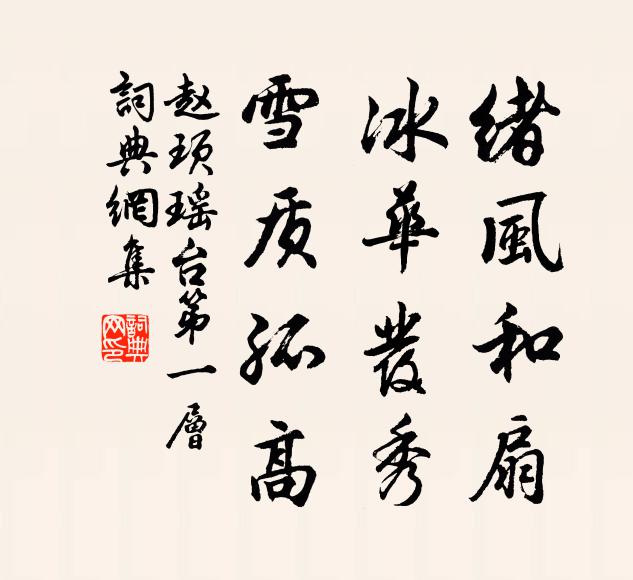 绪風和扇
冰華發秀
雪质孤高
赵頊瑶台第一層
詞典網集
詞典網印